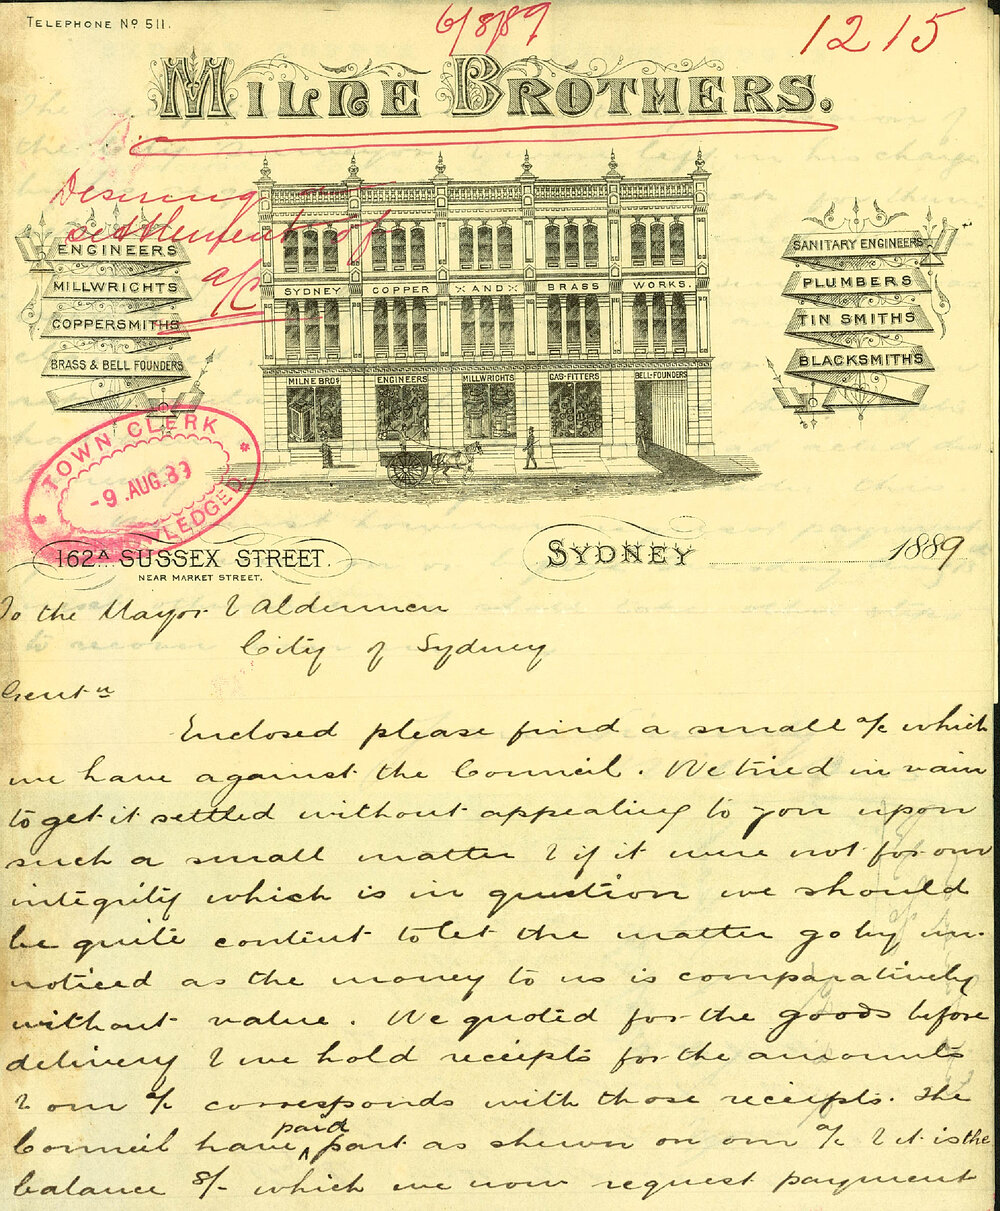 TELEPHONE No 511.
6/8/89
1215
MILNE BROTHERS.
Desiring
settlement of
a/c
ENGINEERS
MILLWRIGHTS
COPPERSMITHS
BRASS & BELL FOUNDERS
SANITARY ENGINEERS
PLUMBERS
TIN SMITHS
BLACKSMITHS
SYDNEY COPPER AND BRASS WORKS.
MILNE BROS ENGINEERS MILLWRIGHTS GAS-FITTERS BELL-FOUNDERS
TOWN CLERK
-9.AUG.89
162A SUSSEX STREET.
NEAR MARKET STREET.
SYDNEY 1889
To the Mayor & Aldermen
City of Sydney
Gentn
Enclosed please find a small a/c which
we have against the Council. We tried in vain
to get it settled without appealing to you upon
such a small matter & if it were not for our
integrity which is in question we should
be quite content to let the matter go by un-
noticed as the money to us is comparatively
without value. We quoted for the goods before
delivery & we hold receipts for the amounts
& our a/c corresponds with those receipts. The
Council have paid part as shewn on our a/c & it is the
balance 8/- which we now request payment